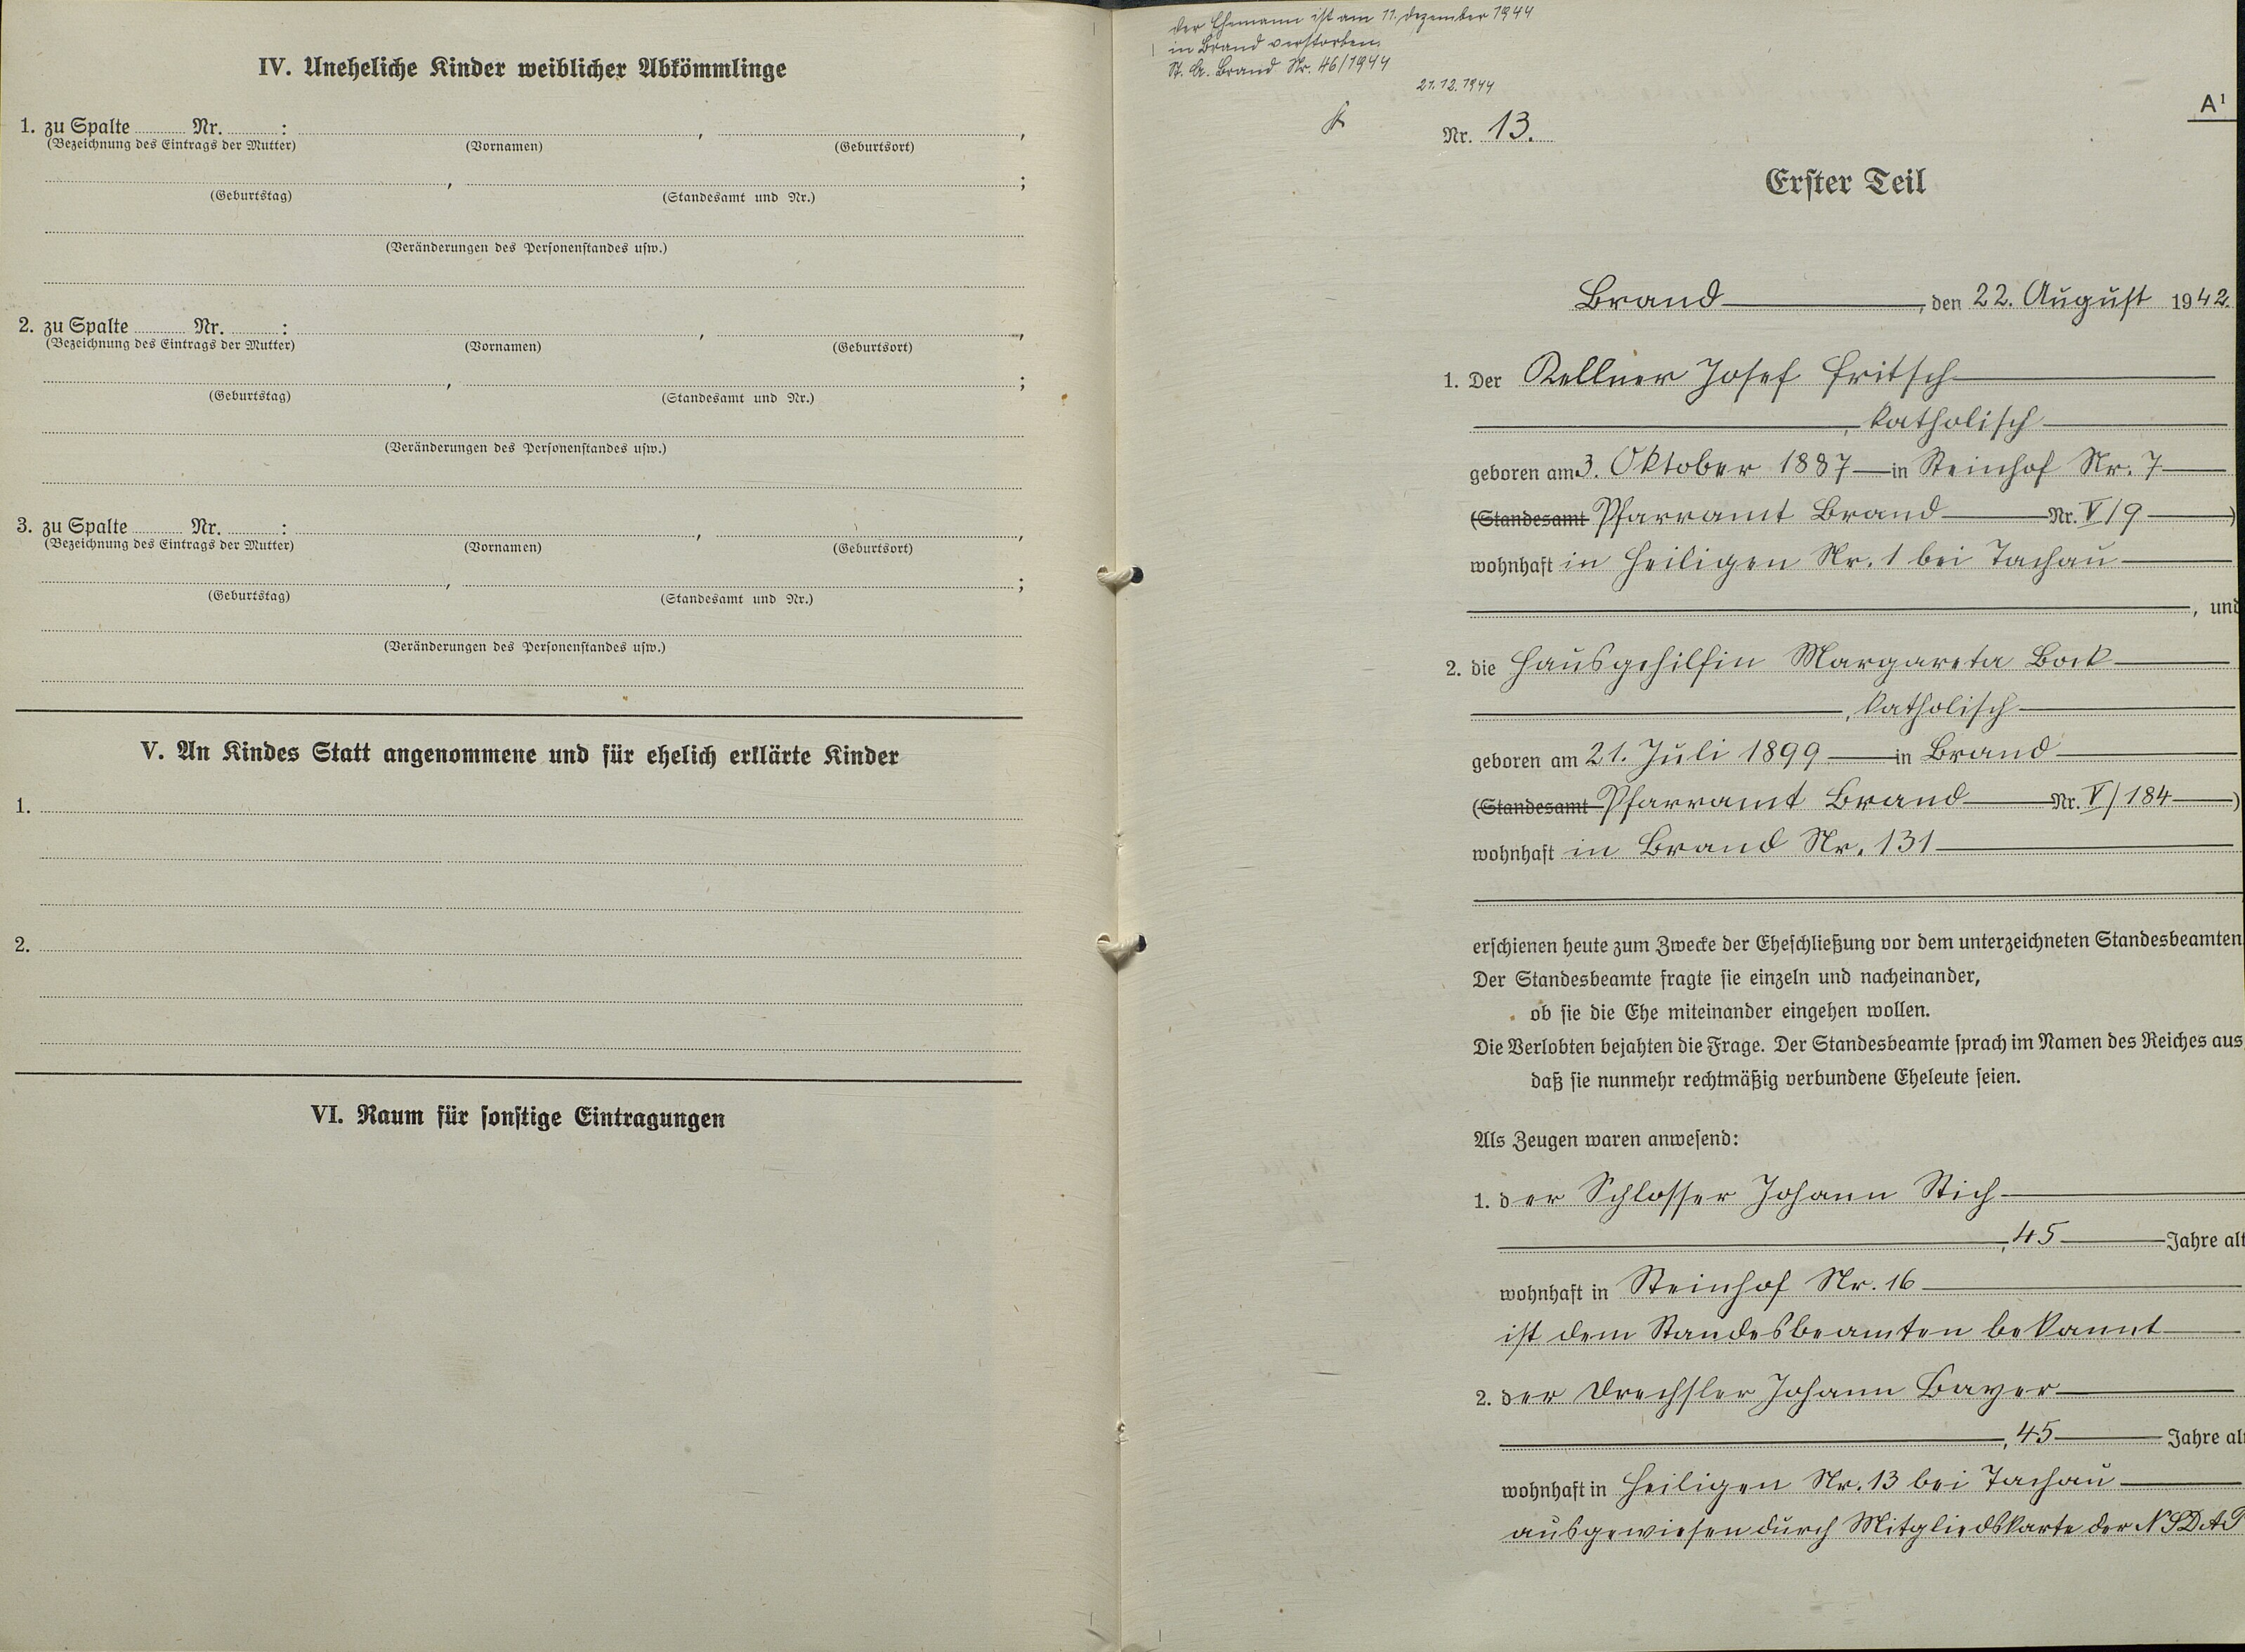 IV. Uneheliche Kinder weiblicher Abkömmlinge
1. zu Spalte Nr. : , ,
(Bezeichnung des Eintrags der Mutter) (Vornamen) (Geburtsort)
, ;
(Geburtstag) (Standesamt und Nr.)
(Veränderungen des Personenstandes usw.)
2. zu Spalte Nr. : , ,
(Bezeichnung des Eintrags der Mutter) (Vornamen) (Geburtsort)
, ;
(Geburtstag) (Standesamt und Nr.)
(Veränderungen des Personenstandes usw.)
3. zu Spalte Nr. : , ,
(Bezeichnung des Eintrags der Mutter) (Vornamen) (Geburtsort)
, ;
(Geburtstag) (Standesamt und Nr.)
(Veränderungen des Personenstandes usw.)
V. An Kindes Statt angenommene und für ehelich erklärte Kinder
1.
2.
VI. Raum für sonstige Eintragungen
der Ehemann ist am 11. dezember 1944
in Brand verstorben.
St. A. Brand Nr. 46/1944
21.12.1944
A1
Nr. 13.
Erster Teil
Brand, den 22. August 1942.
1. Der Kellner Josef Fritsch
, katholisch
geboren am 3. Oktober 1887 in Steinhof Nr. 7
(Standesamt Pfarramt Brand Nr. V/9)
wohnhaft in Heiligen Nr. 1 bei Tachau
, und
2. die Hausgehilfin Margareta Bock
, katholisch
geboren am 21. Juli 1899 in Brand
(Standesamt Pfarramt Brand Nr. V/184)
wohnhaft in Brand Nr. 131
erschienen heute zum Zwecke der Eheschließung vor dem unterzeichneten Standesbeamten
Der Standesbeamte fragte sie einzeln und nacheinander,
ob sie die Ehe miteinander eingehen wollen.
Die Verlobten bejahten die Frage. Der Standesbeamte sprach im Namen des Reiches aus
daß sie nunmehr rechtmäßig verbundene Eheleute seien.
Als Zeugen waren anwesend:
1. der Schlosser Johann Stich
, 45 Jahre alt
wohnhaft in Steinhof Nr. 16
ist dem Standesbeamten bekannt
2. der Drechsler Johann Bayer
, 45 Jahre alt
wohnhaft in Heiligen Nr. 13 bei Tachau
ausgewiesen durch Mitgliedskarte der NSDAP